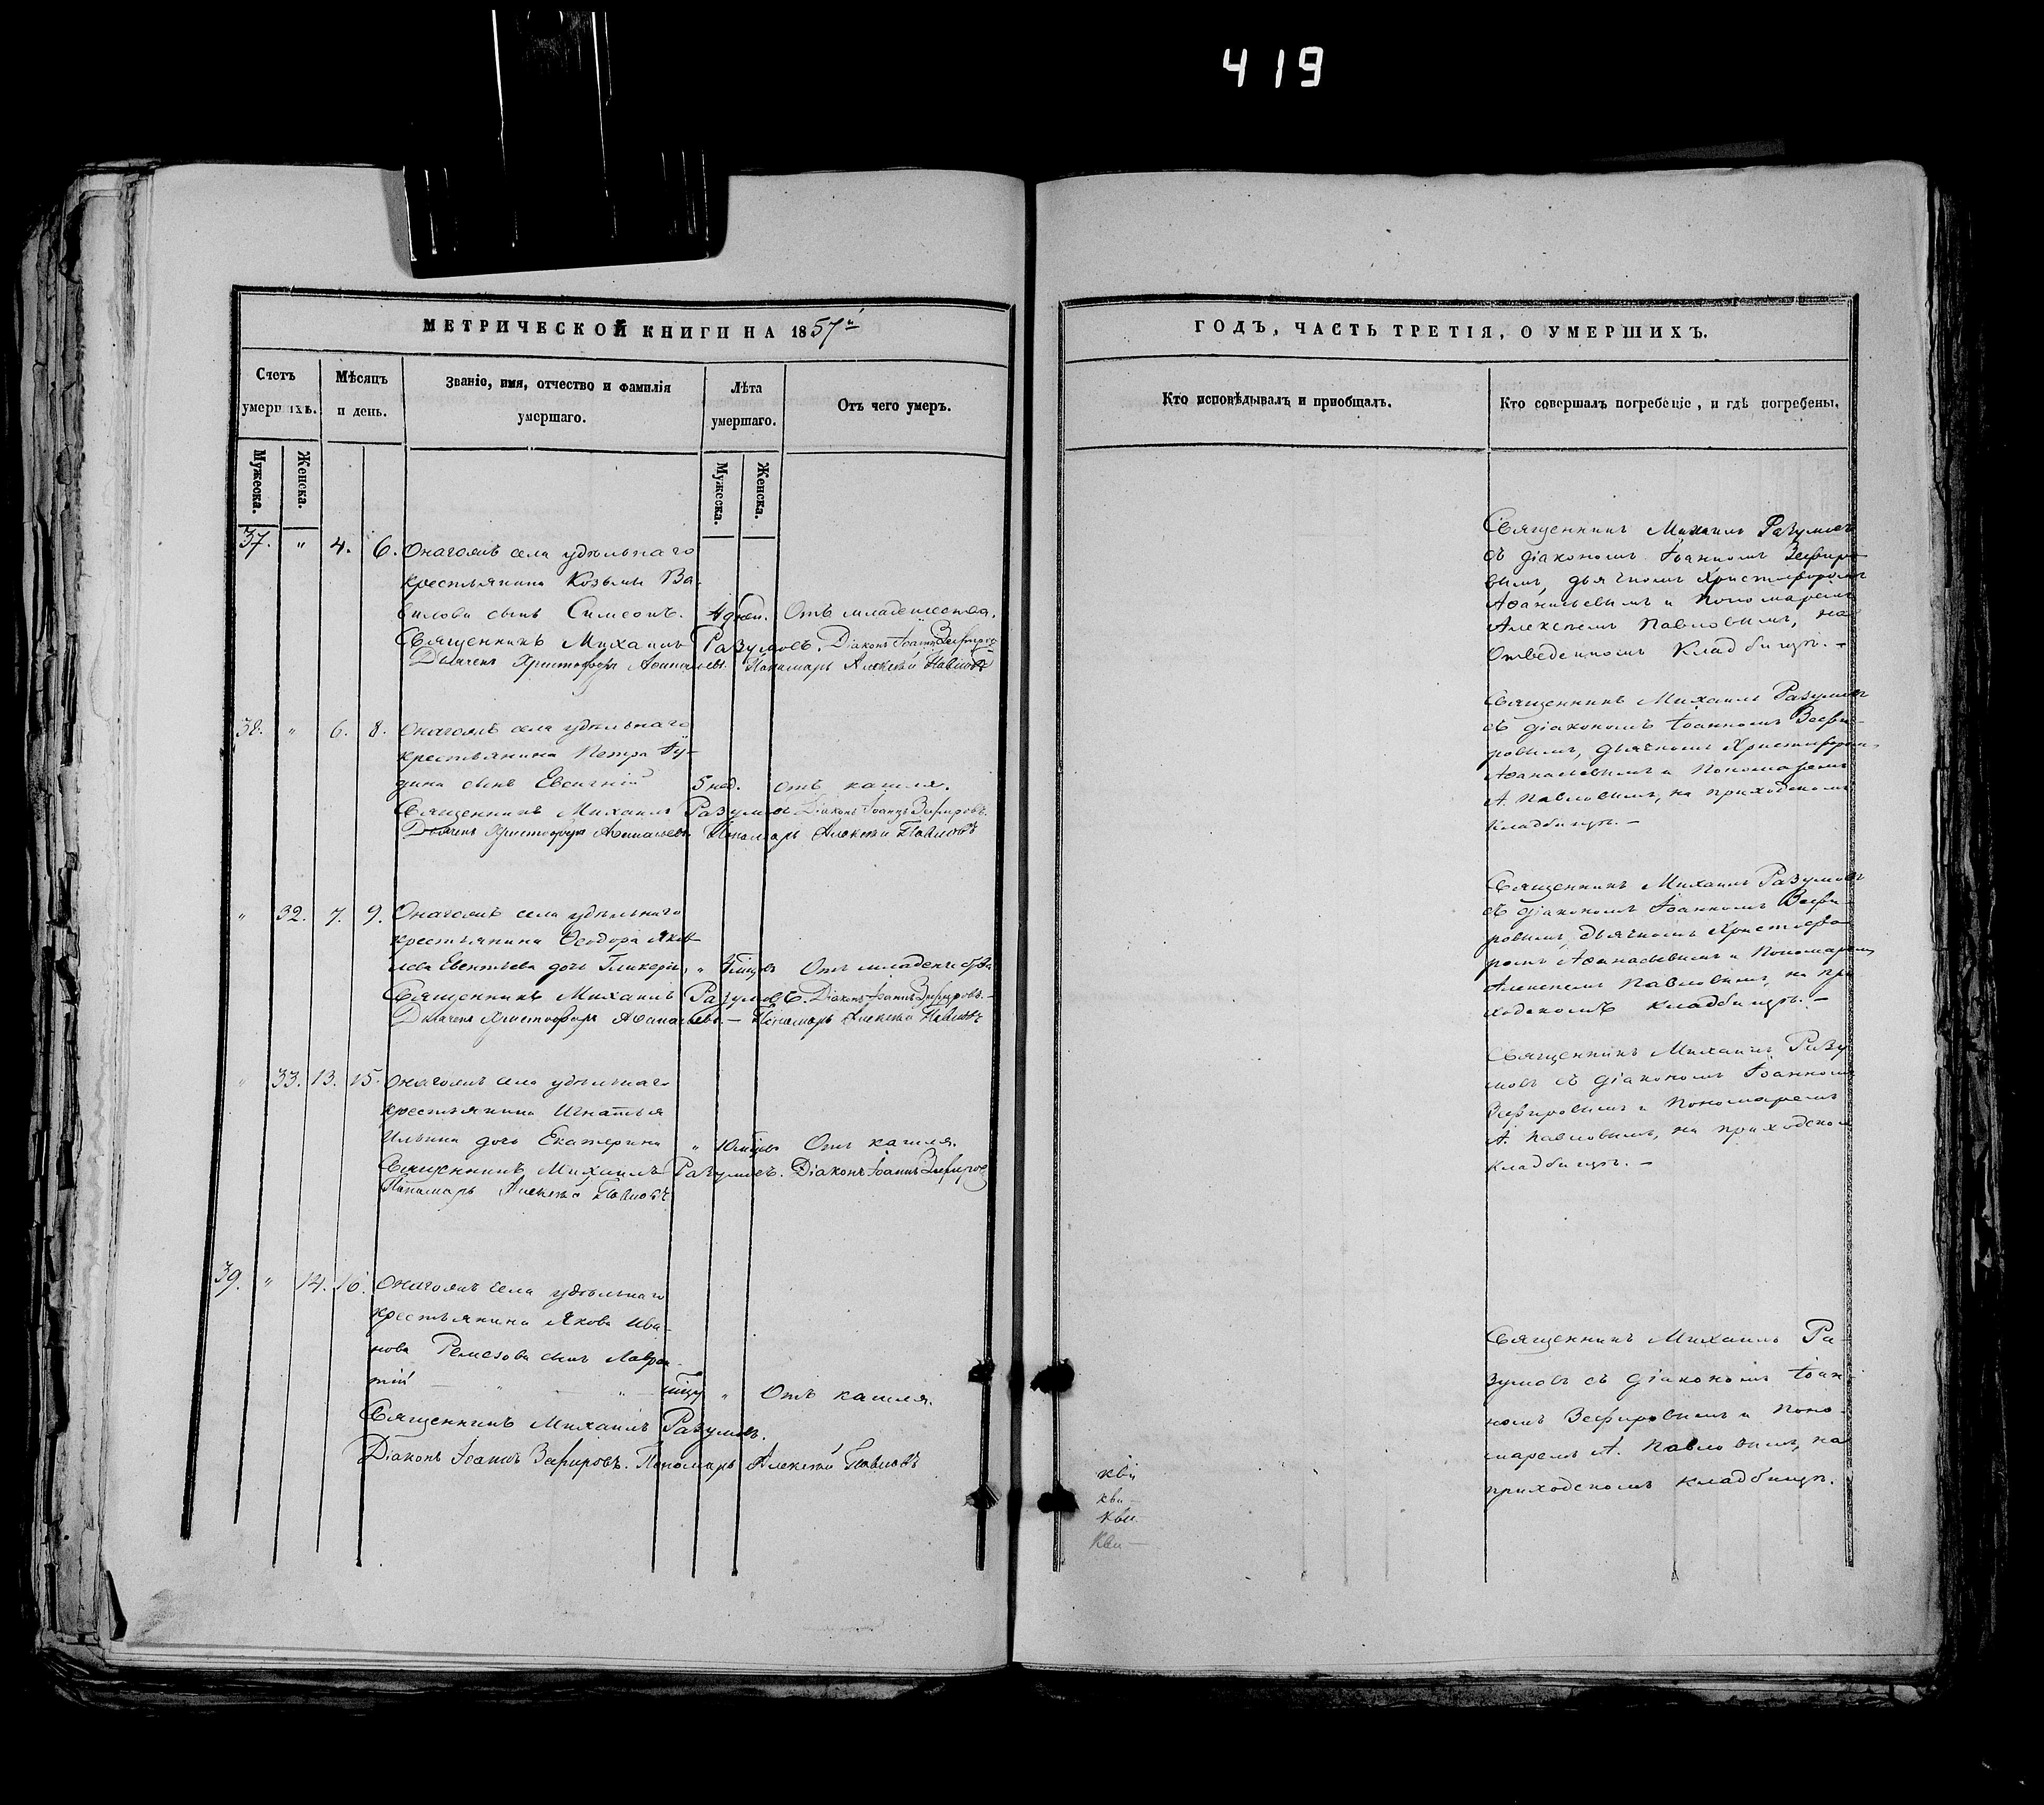 419
МЕТРИЧЕСКОЙ КНИГИ НА 1857й
Счетъ умершихъ.
Мѣсяцъ и день.
Званіе, имя, отчество и фамилія умершаго.
Лѣта умершаго.
Отъ чего умеръ.
Мужеска.
Женска.
Мужеска.
Женска.
37. " 4. 6. Онагожъ села удѣльнаго
крестьянина Козьмы Ва-
силова сынъ Симеонъ. 4 дней. Отъ младенчества.
Священникъ Михаилъ Разумовъ. Діаконъ Іоаннъ Зефировъ
Дьячекъ Христофоръ Аѳанасьевъ. Пономарь Алексѣй Павловъ
38. " 6. 8. Онагожъ села удѣльнаго
крестьянина Петра
сынъ Евсигній 5 нед. отъ кашля.
Священникъ Михаилъ Разумовъ Діаконъ Іоаннъ Зефировъ.
Дьячекъ Христофоръ Аѳанасьевъ Пономарь Алексѣй Павловъ
" 32. 7. 9. Онагожъ села удѣльнаго
крестьянина Ѳеодора Яков-
лева дочь Гликерія " Отъ младенчества
Священникъ Михаилъ Разумовъ. Діаконъ Іоаннъ Зефировъ.
Дьячекъ Христофоръ Аѳанасьевъ. — Пономарь Алексѣй Павловъ
" 33. 13. 15. Онагожъ села удѣльнаго
крестьянина Игнатья
Ильина дочь Екатерина " Отъ кашля.
Священникъ Михаилъ Разумовъ. Діаконъ Іоаннъ Зефировъ
Пономарь Алексѣй Павловъ
39. " 14. 16. Онагожъ села удѣльнаго
крестьянина Якова Ива-
нова Ремезова сынъ Лаврен-
тій " Отъ кашля.
Священникъ Михаилъ Разумовъ.
Діаконъ Іоаннъ Зефировъ. Пономарь Алексѣй Павловъ
ГОДЪ, ЧАСТЬ ТРЕТІЯ, О УМЕРШИХЪ.
Кто исповѣдывалъ и пріобщалъ.
Кто совершалъ погребеніе, и гдѣ погребены.
Священникъ Михаилъ Разумовъ
съ діакономъ Іоанномъ Зефиро-
вымъ, дьячкомъ Христофоромъ
Аѳанасьевымъ и Пономаремъ
Алексѣемъ Павловымъ, на
отведенномъ Кладбищѣ. —
Священникъ Михаилъ Разумовъ
съ діакономъ Іоанномъ Зефи-
ровымъ, дьячкомъ Христофоромъ
Аѳанасьевымъ и Пономаремъ
А. Павловымъ, на приходскомъ
Кладбищѣ. —
Священникъ Михаилъ Разумовъ
съ діакономъ Іоанномъ Зефи-
ровымъ, дьячкомъ Христофо-
ромъ Аѳанасьевымъ и Пономаремъ
Алексѣемъ Павловымъ, на при-
ходскомъ кладбищѣ. —
Священникъ Михаилъ Разу-
мовъ съ діакономъ Іоанномъ
Зефировымъ и Пономаремъ
А. Павловымъ, на приходском
Кладбищѣ. —
Священникъ Михаилъ Ра-
зумовъ съ діакономъ Іоан-
номъ Зефировымъ и Поно-
маремъ А. Павловымъ, на
приходскомъ кладбищѣ.